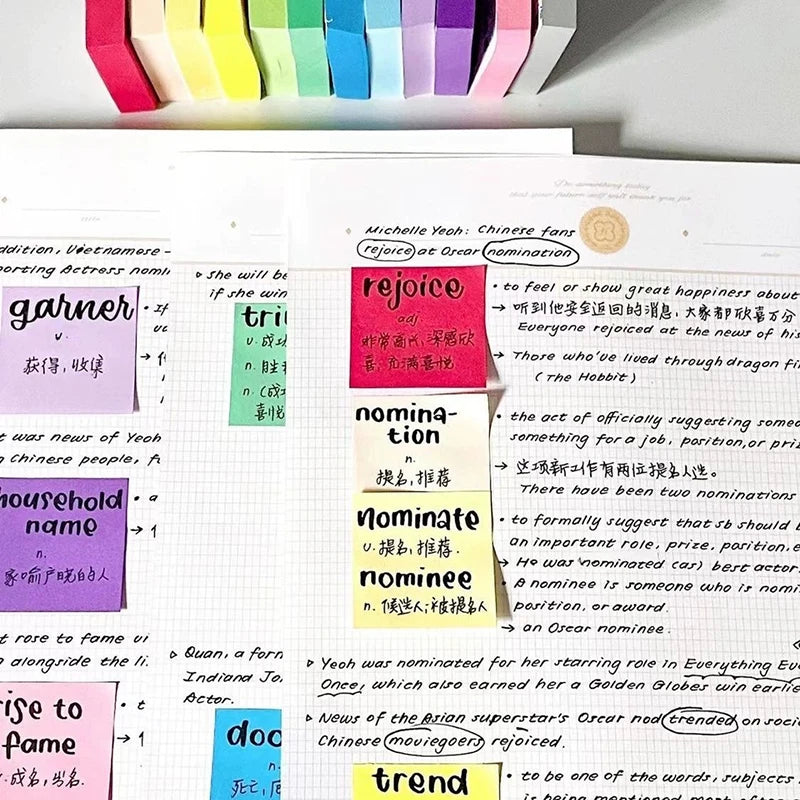 Do something today
that your future self will thank you for
title
date
Michelle Yeoh: Chinese fans
rejoice at Oscar nomination
rejoice
adj.
非常高兴，深感欣
喜，充满喜悦
• to feel or show great happiness about
→ 听到他安全返回的消息，大家都欣喜万分
Everyone rejoiced at the news of his
→ Those who've lived through dragon fi
(The Hobbit)
nomina-
tion
n.
提名，推荐
• the act of officially suggesting someo
something for a job, position, or priz
→ 这项新工作有两位提名人选。
There have been two nominations
nominate
v. 提名，推荐.
nominee
n. 候选人；被提名人
• to formally suggest that sb should b
an important role, prize, position, e
→ He was nominated (as) best actor
• A nominee is someone who is nomi
position, or award.
→ an Oscar nominee.
▹ Yeoh was nominated for her starring role in Everything Eve
Once, which also earned her a Golden Globes win earlie
▹ News of the Asian superstar's Oscar nod trended on soci
Chinese moviegoers rejoiced.
trend
• to be one of the words, subjects
is being mentioned most often
▹ She will be
if she win
tri
v. 成功
n. 胜
n. (成功
喜悦
▹ Quan, a form
Indiana Jo
Actor.
doo
死亡，厄
ddition, Vietnamese -
porting Actress nomi
garner
v.
获得，收集
• If
→
t was news of Yeoh
n Chinese people, f
household
name
n.
家喻户晓的人
• a
→
t rose to fame vi
n alongside the li
rise to
fame
v. 成名，出名.
• t
→